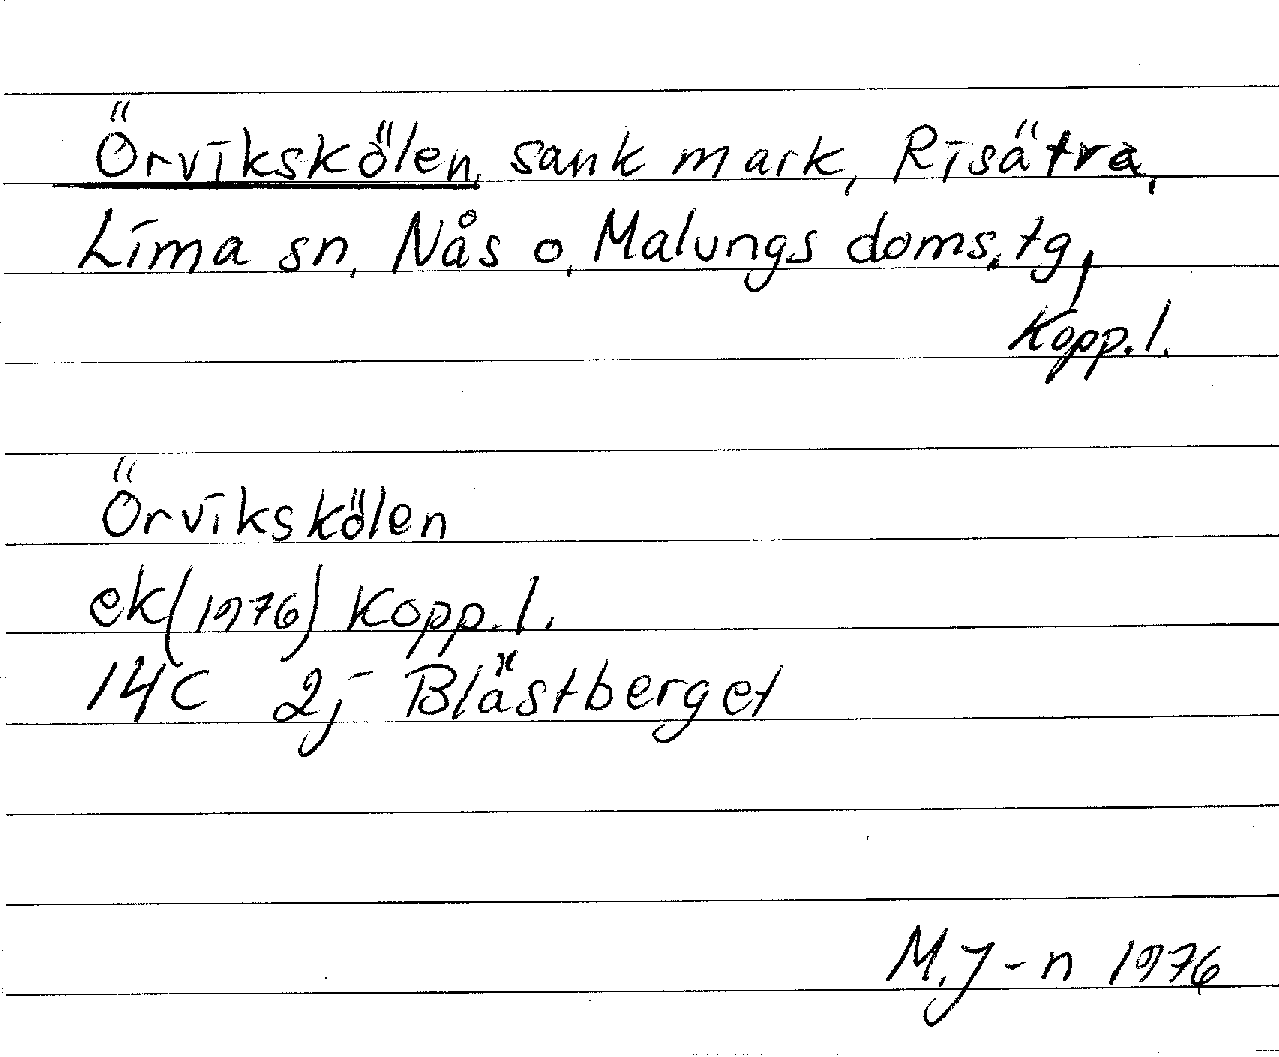 Örvikskölen, sank mark, Risätra,
Lima sn, Nås o, Malungs doms.tg,
Kopp.l.
Örvikskölen
ek(1976) Kopp.l.
14C 2j Blästberget
M.J-n 1976